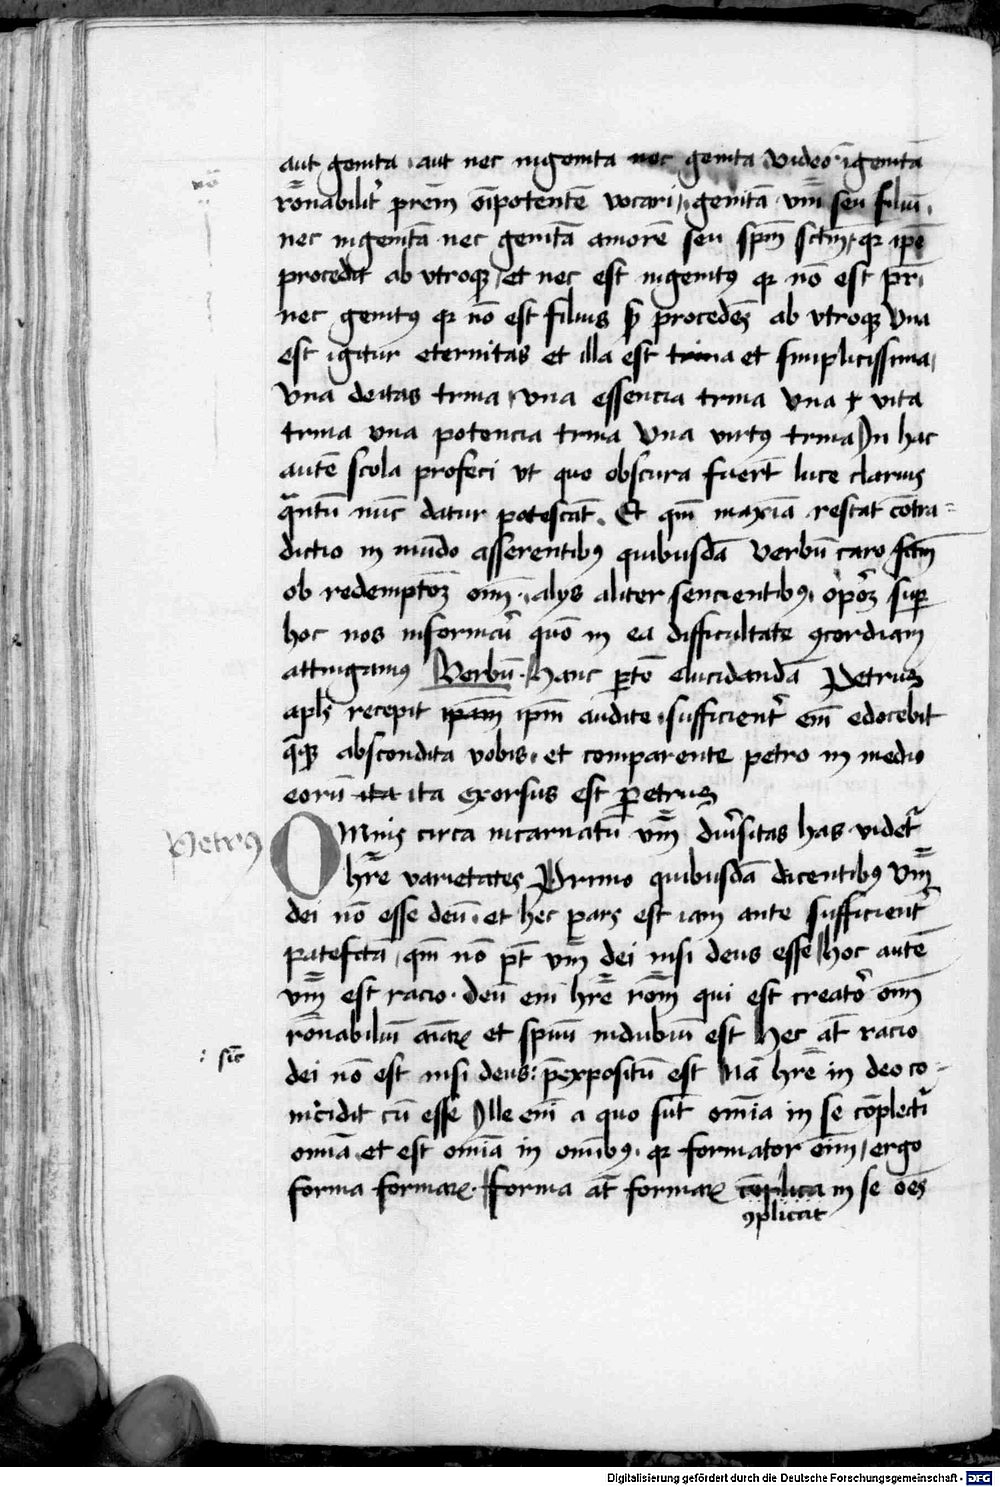 aut genita aut nec ingenita nec genita video igenitā
rōnabilit' prēm oīpotentē vocari genitā vm̄ seu filiū
nec ingenitā nec genitā amorē seu spm̄ sctm̄ qr ipē
procedit ab vtroqꝫ et nec est ingenitꝰ qr nō est pr̄
nec genitꝰ qr nō est filius sꝫ procedēs ab vtroqꝫ Vna
est igitur eternitas et illa est trina et simplicissima
Vna deitas trina vna essencia trina Vna vita
trina vna potencia trina Vna virtꝰ trina In hac
autē scola profeci vt quo obscura fuerīt luce clarius
qᵃntū nūc datur patescāt. Et qm̄ maxīa restat cōtra=
dictio in mūdo asserentibꝰ quibusdā Verbū caro fctm̄
ob redemptōꝫ oīm alys aliter sencientibꝰ oportꝫ super
hoc nos informari quō in ea difficultate ꝯcordiam
attingamus Verbū. Hanc ꝑtē elucidandā Petrus
apls recepit ipam ipm̄ audite sufficient' em̄ edocebit
qᵃqꝫ abscondita vobis et comparente petro in medio
eorū ita ita exorsus est Petrus
Petrꝰ
OMnis circa incarnatū vm̄ diu'sitas has videt'
hr̄e varietates Primo quibusdā dicentibꝰ vm̄
dei nō esse deū et hec pars est iam ante sufficient'
patefctā qm̄ nō pt̄ vm̄ dei nisi deus esse hoc autē
vm̄ est racio deū eni hr̄e rōm̄ qui est creator oīm
rōnabiliū aīaꝝ et spūū indubiū est Hec āt racio
: sīc
dei nō est nisi deus: p̄expositū est Nā hr̄e in deo co=
incidit cū esse Ille enī a quo sūt omīa in se cōplectit'
omīa et est omīa in omībꝰ qr formator oīm ergo
forma formaꝝ. forma āt formaꝝ cōplica in se oēs
ꝯplicat
Digitalisierung gefördert durch die Deutsche Forschungsgemeinschaft - DFG